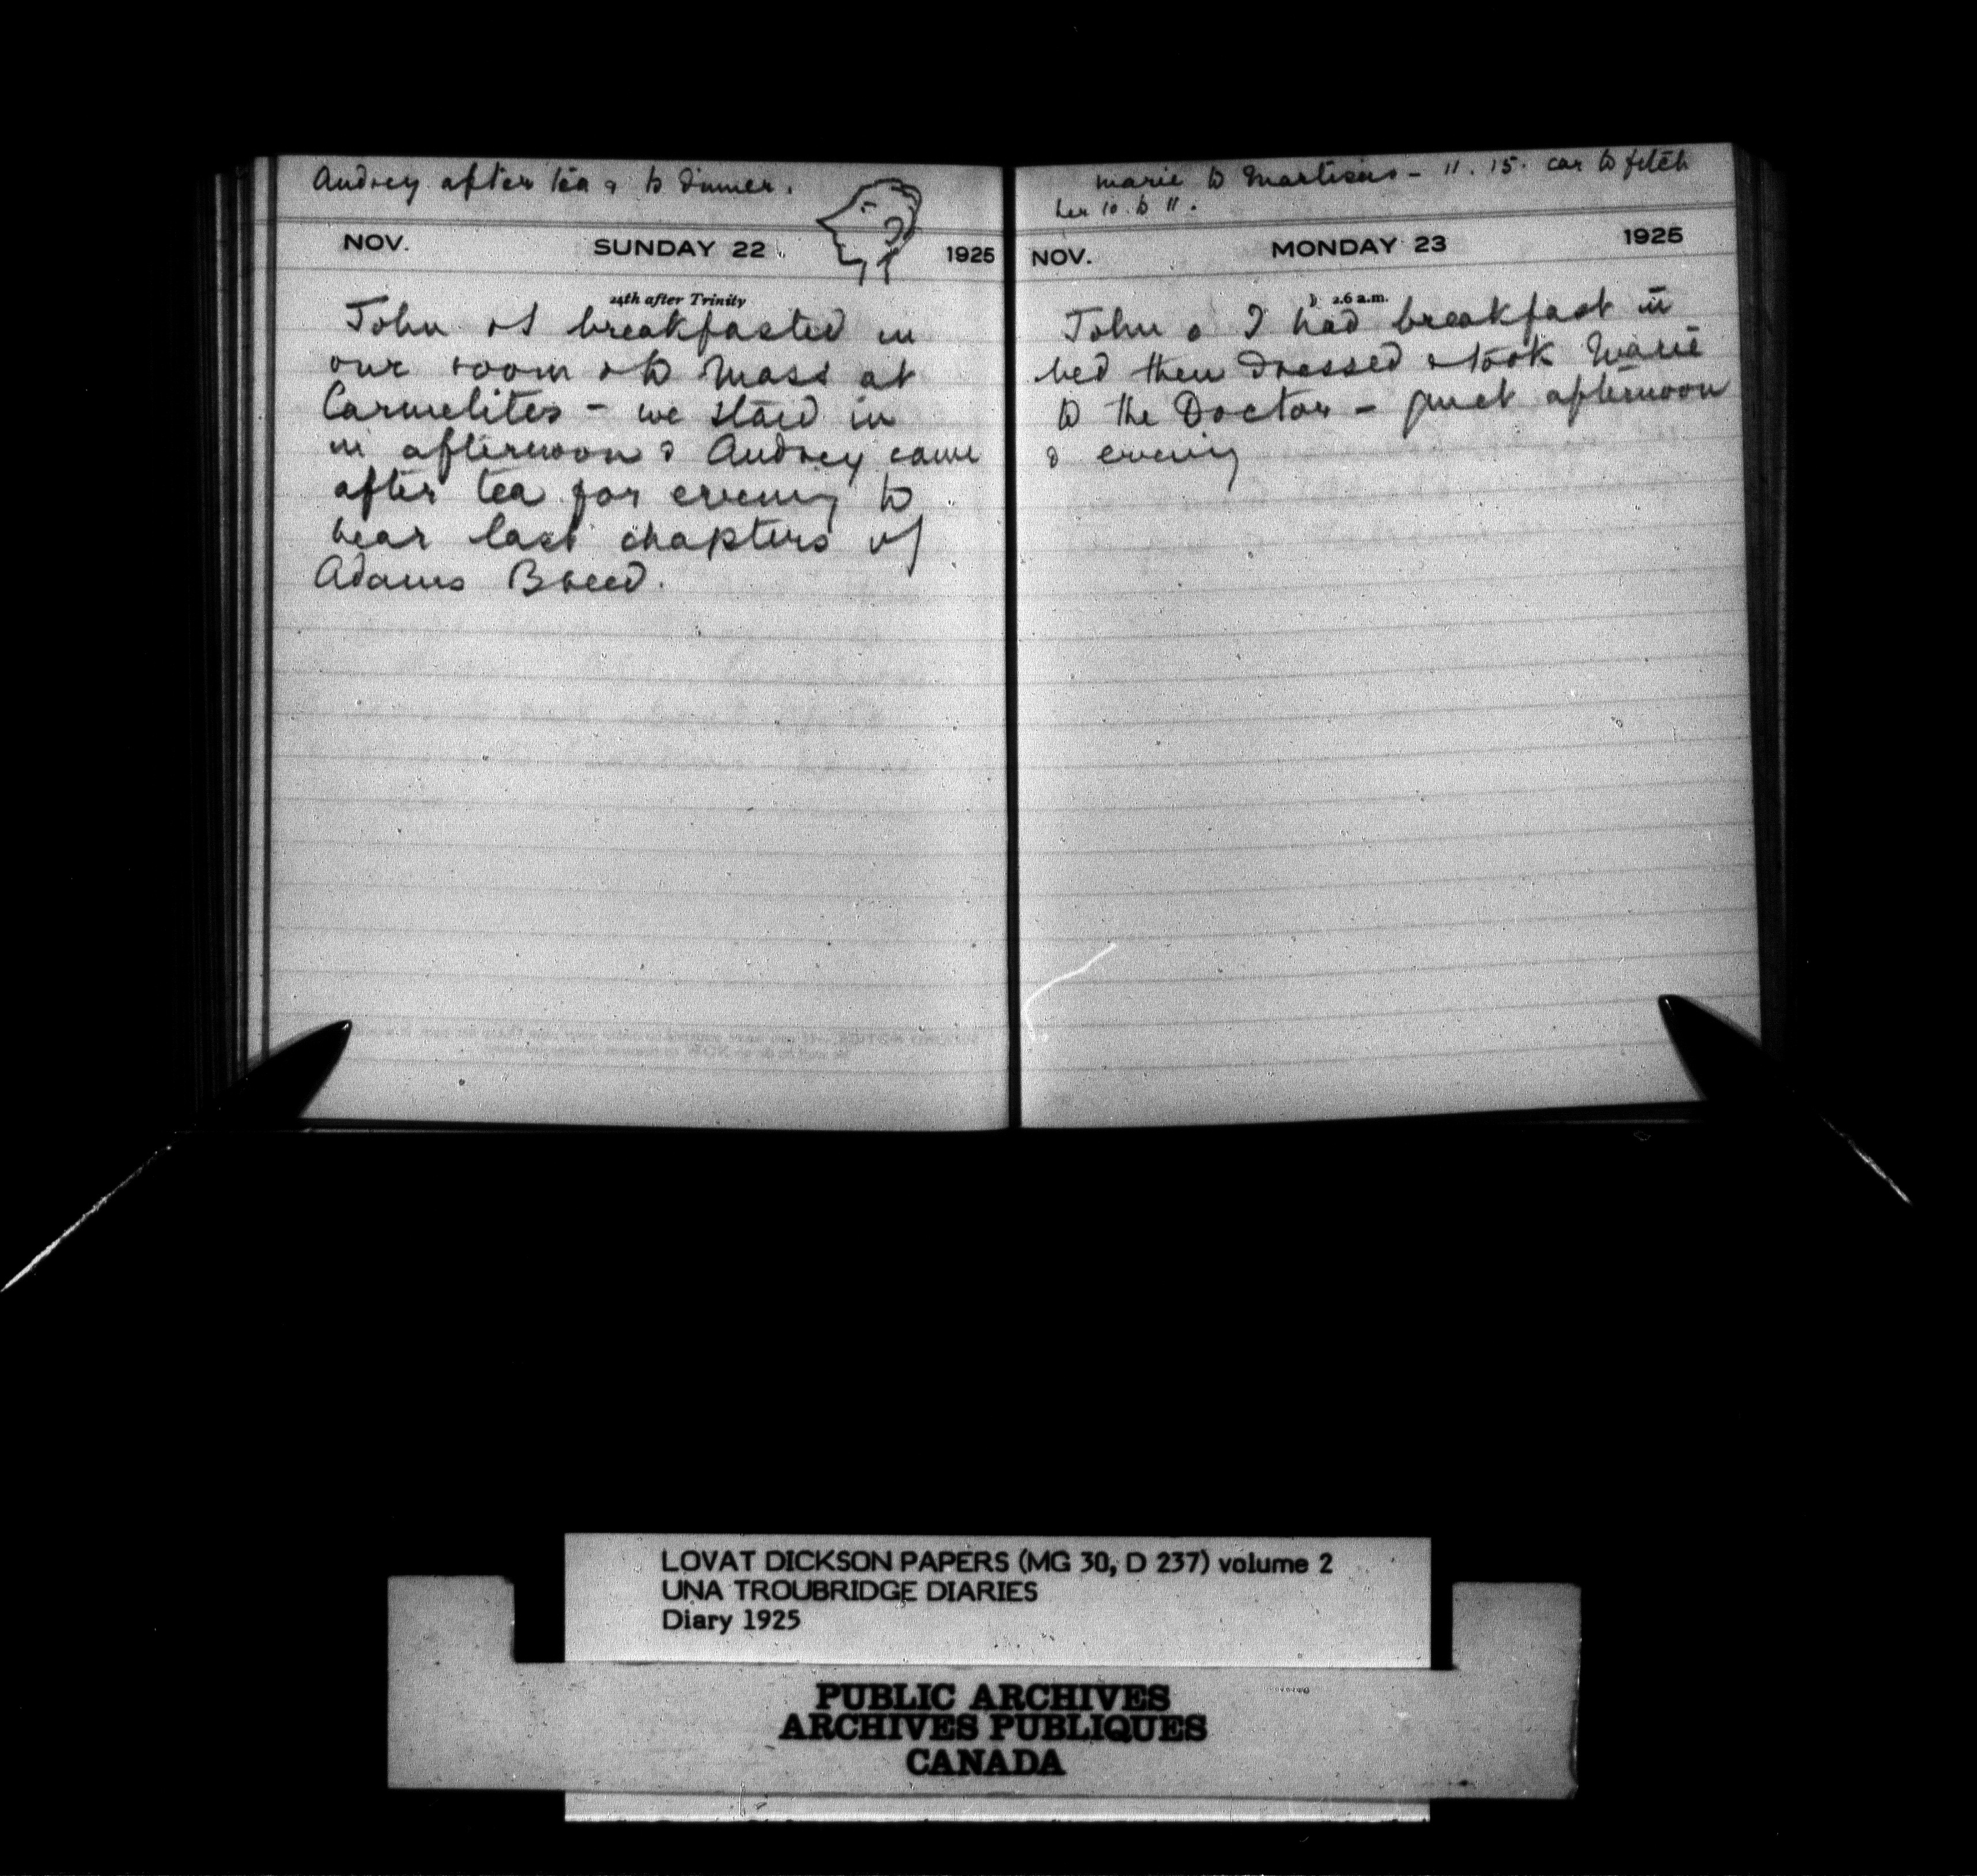 Audrey after tea & to dinner.
NOV. SUNDAY 22 1925
24th after Trinity
John & I breakfasted in
our room & to Mass at
Carmelites - we staid in
in afternoon & Audrey came
after tea for evening to
hear last chapters of
Adams Breed.
Marie to - 11.15. car to fetch
her 10. to 11.
NOV. MONDAY 23 1925
☽ 2.6 a.m.
John & I had breakfast in
bed then dressed & took Marie
to the Doctor - quiet afternoon
& evening
LOVAT DICKSON PAPERS (MG 30, D 237) volume 2
UNA TROUBRIDGE DIARIES
Diary 1925
PUBLIC ARCHIVES
ARCHIVES PUBLIQUES
CANADA